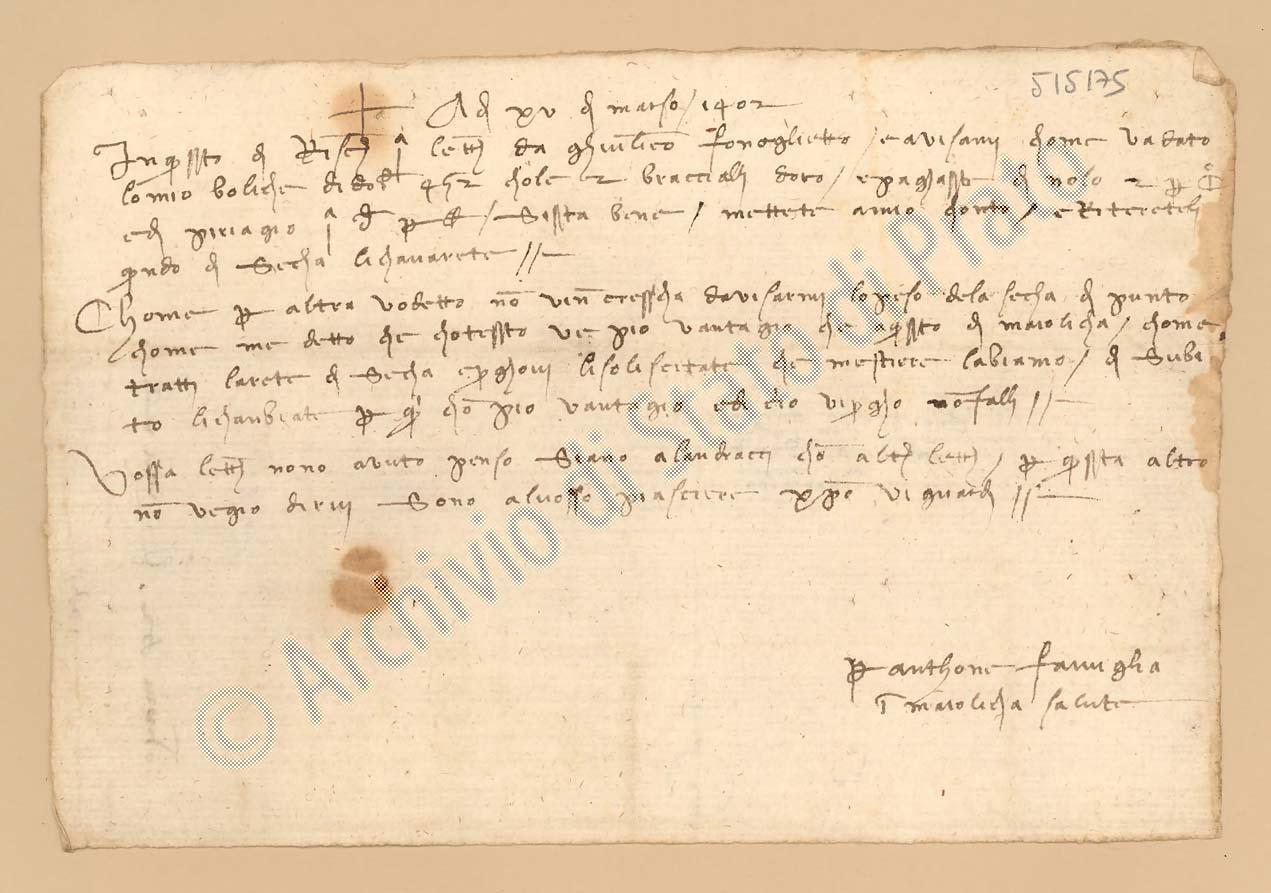 515175
Adi xv di marso / 1402
In questo di lett da fonoglietto / e avisami chome va dato
lo mio boliche di dob 452 chole 2 braccialli doro / e paghasse di nolo 2 per C
edi piriagio Sissta bene / mettete a mio chonto / e Ritereteli
quando di Secha li chavarete //
Chome per altra vo detto no vin cressciha davisarmi lo peso dela secha di punto
chome me detto che chotessto ve pio vantagio che questo di maiolicha / chome
tratti larete di Secha e preghovi li soliscitate che mestiere labiamo / di Subi
to li chanbiate per qui cho pio vantagio e di cio vi pregho non falli //
Vossa lett nono avuto penso Siano a landracci cho altr lett / per questa altro
no vegio dirvi Sono al vosso piasciere xpo vi guardi //
per anthone famiglia
i maiolicha salute
© Archivio di Stato di Prato